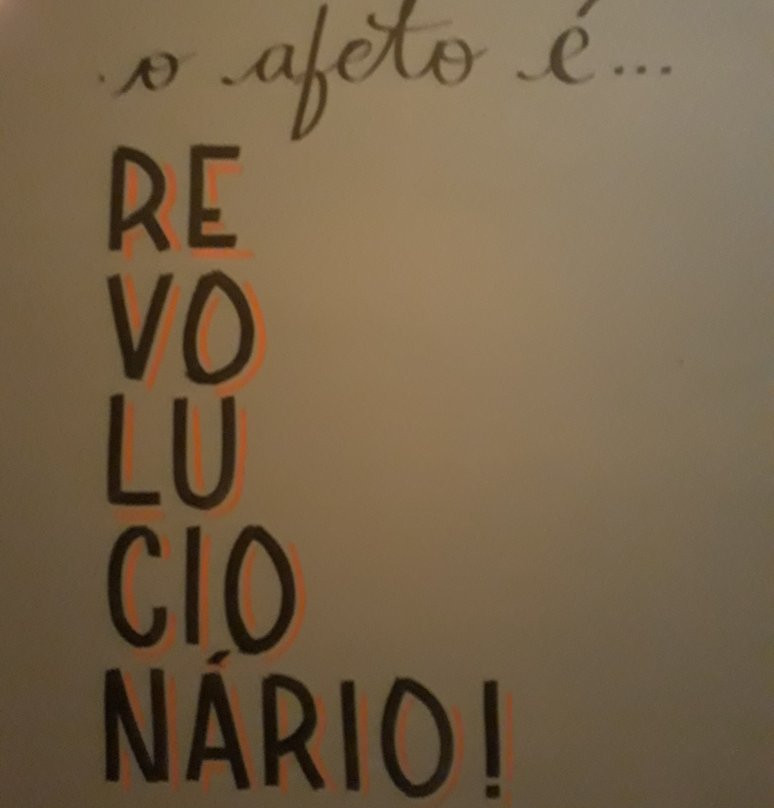 o afeto é...
RE
VO
LU
CIO
NÁRIO!